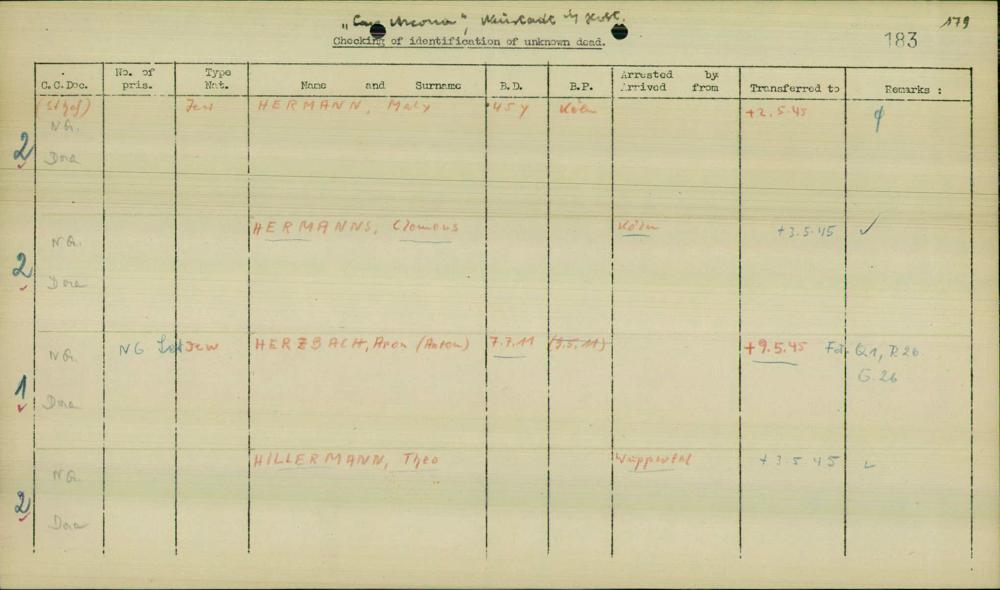 „Cap Arcona", Neustadt i/ Holst. 179
Checking of identification of unknown dead. 183
C.C.Doc. No. of pris. Type Nat. Name and Surname B.D. B.P. Arrested by Arrived from Transferred to Remarks :
(Sthof) Jew HERMANN, Maly 45 y Köln +2.5.45
NG.
2 Dora
HERMANNS, Clemens Köln +3.5.45 ✓
NG.
2 Dora
NG. NG Jew HERZBACH, Aron (Anton) 7.7.11 (9.5.11) +9.5.45 Q1, R26.
G.26
1 Dora
HILLERMANN, Theo Wuppertal +3.5.45 ✓
NG.
2 Dora